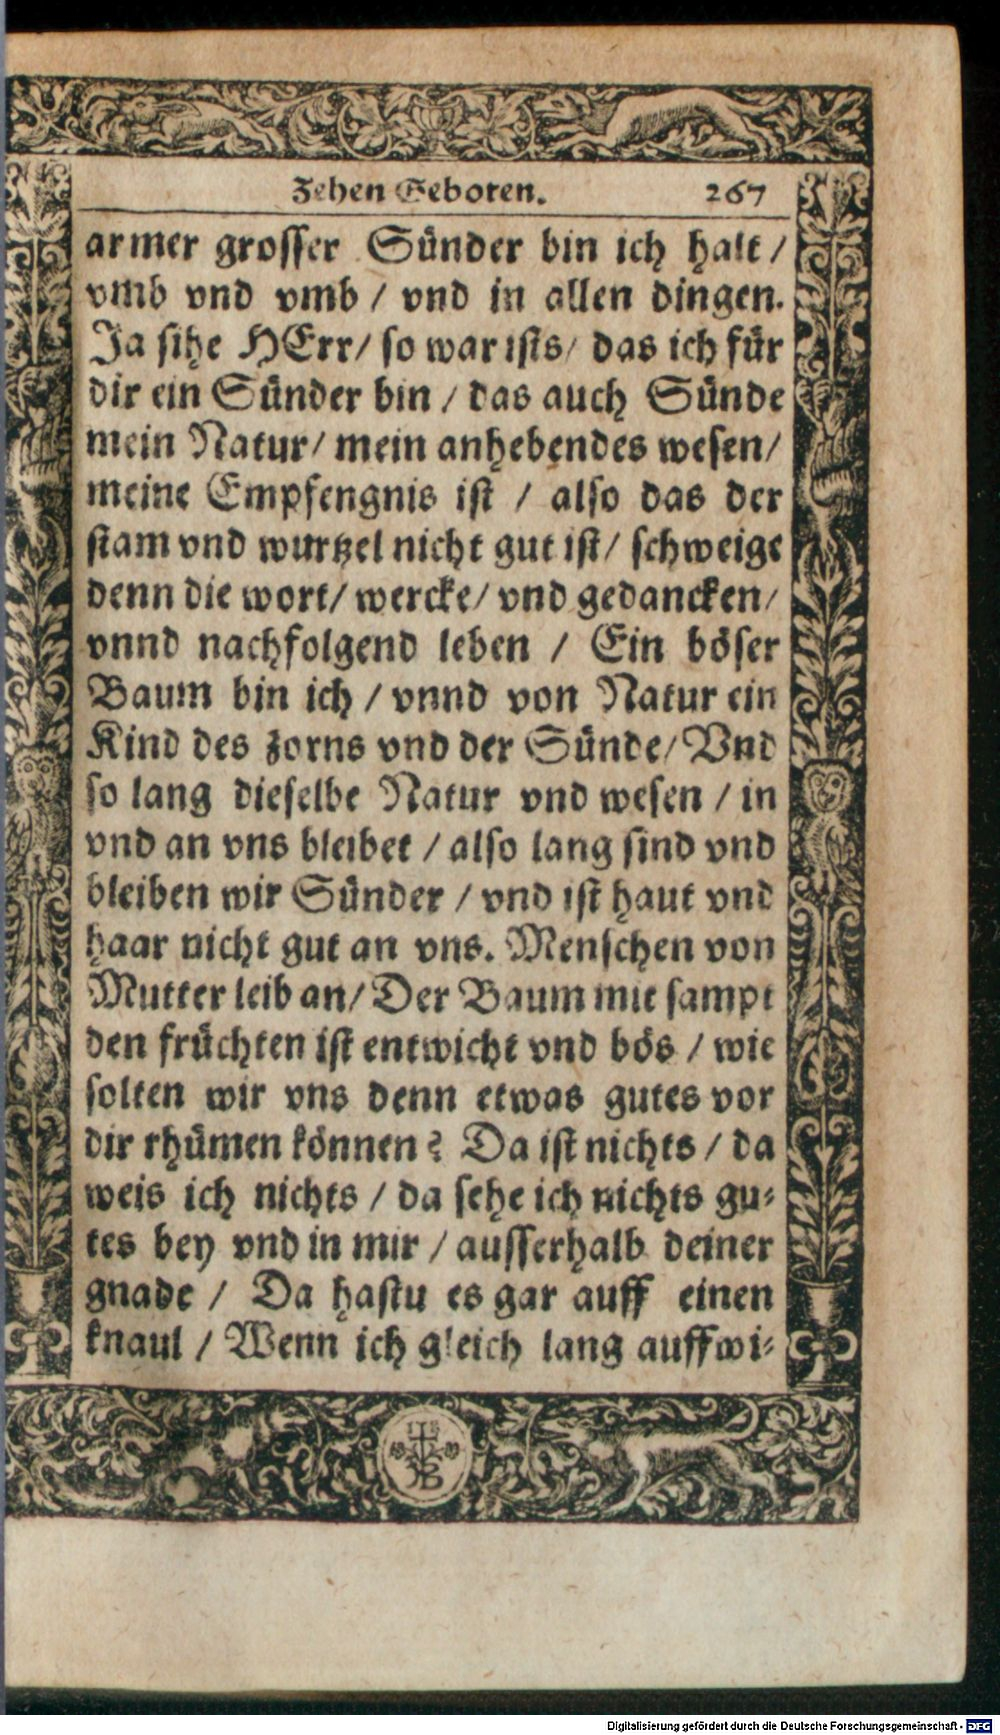 Zehen Geboten. 267
armer grosser Sünder bin ich halt /
vmb vnd vmb / vnd in allen dingen.
Ja sihe HErr / so war ists / das ich für
dir ein Sünder bin / das auch Sünde
mein Natur / mein anhebendes wesen /
meine Empfengnis ist / also das der
stam vnd wurtzel nicht gut ist / schweige
denn die wort / wercke / vnd gedancken /
vnnd nachfolgend leben / Ein böser
Baum bin ich / vnnd von Natur ein
Kind des zorns vnd der Sünde / Vnd
so lang dieselbe Natur vnd wesen / in
vnd an vns bleibet / also lang sind vnd
bleiben wir Sünder / vnd ist haut vnd
haar nicht gut an vns. Menschen von
Mutter leib an / Der Baum mit sampt
den früchten ist entwicht vnd bös / wie
solten wir vns denn etwas gutes vor
dir rhümen können? Da ist nichts / da
weis ich nichts / da sehe ich nichts gu-
tes bey vnd in mir / ausserhalb deiner
gnade / Da hastu es gar auff einen
knaul / Wenn ich gleich lang auffwi-
Digitalisierung gefördert durch die Deutsche Forschungsgemeinschaft - DFG